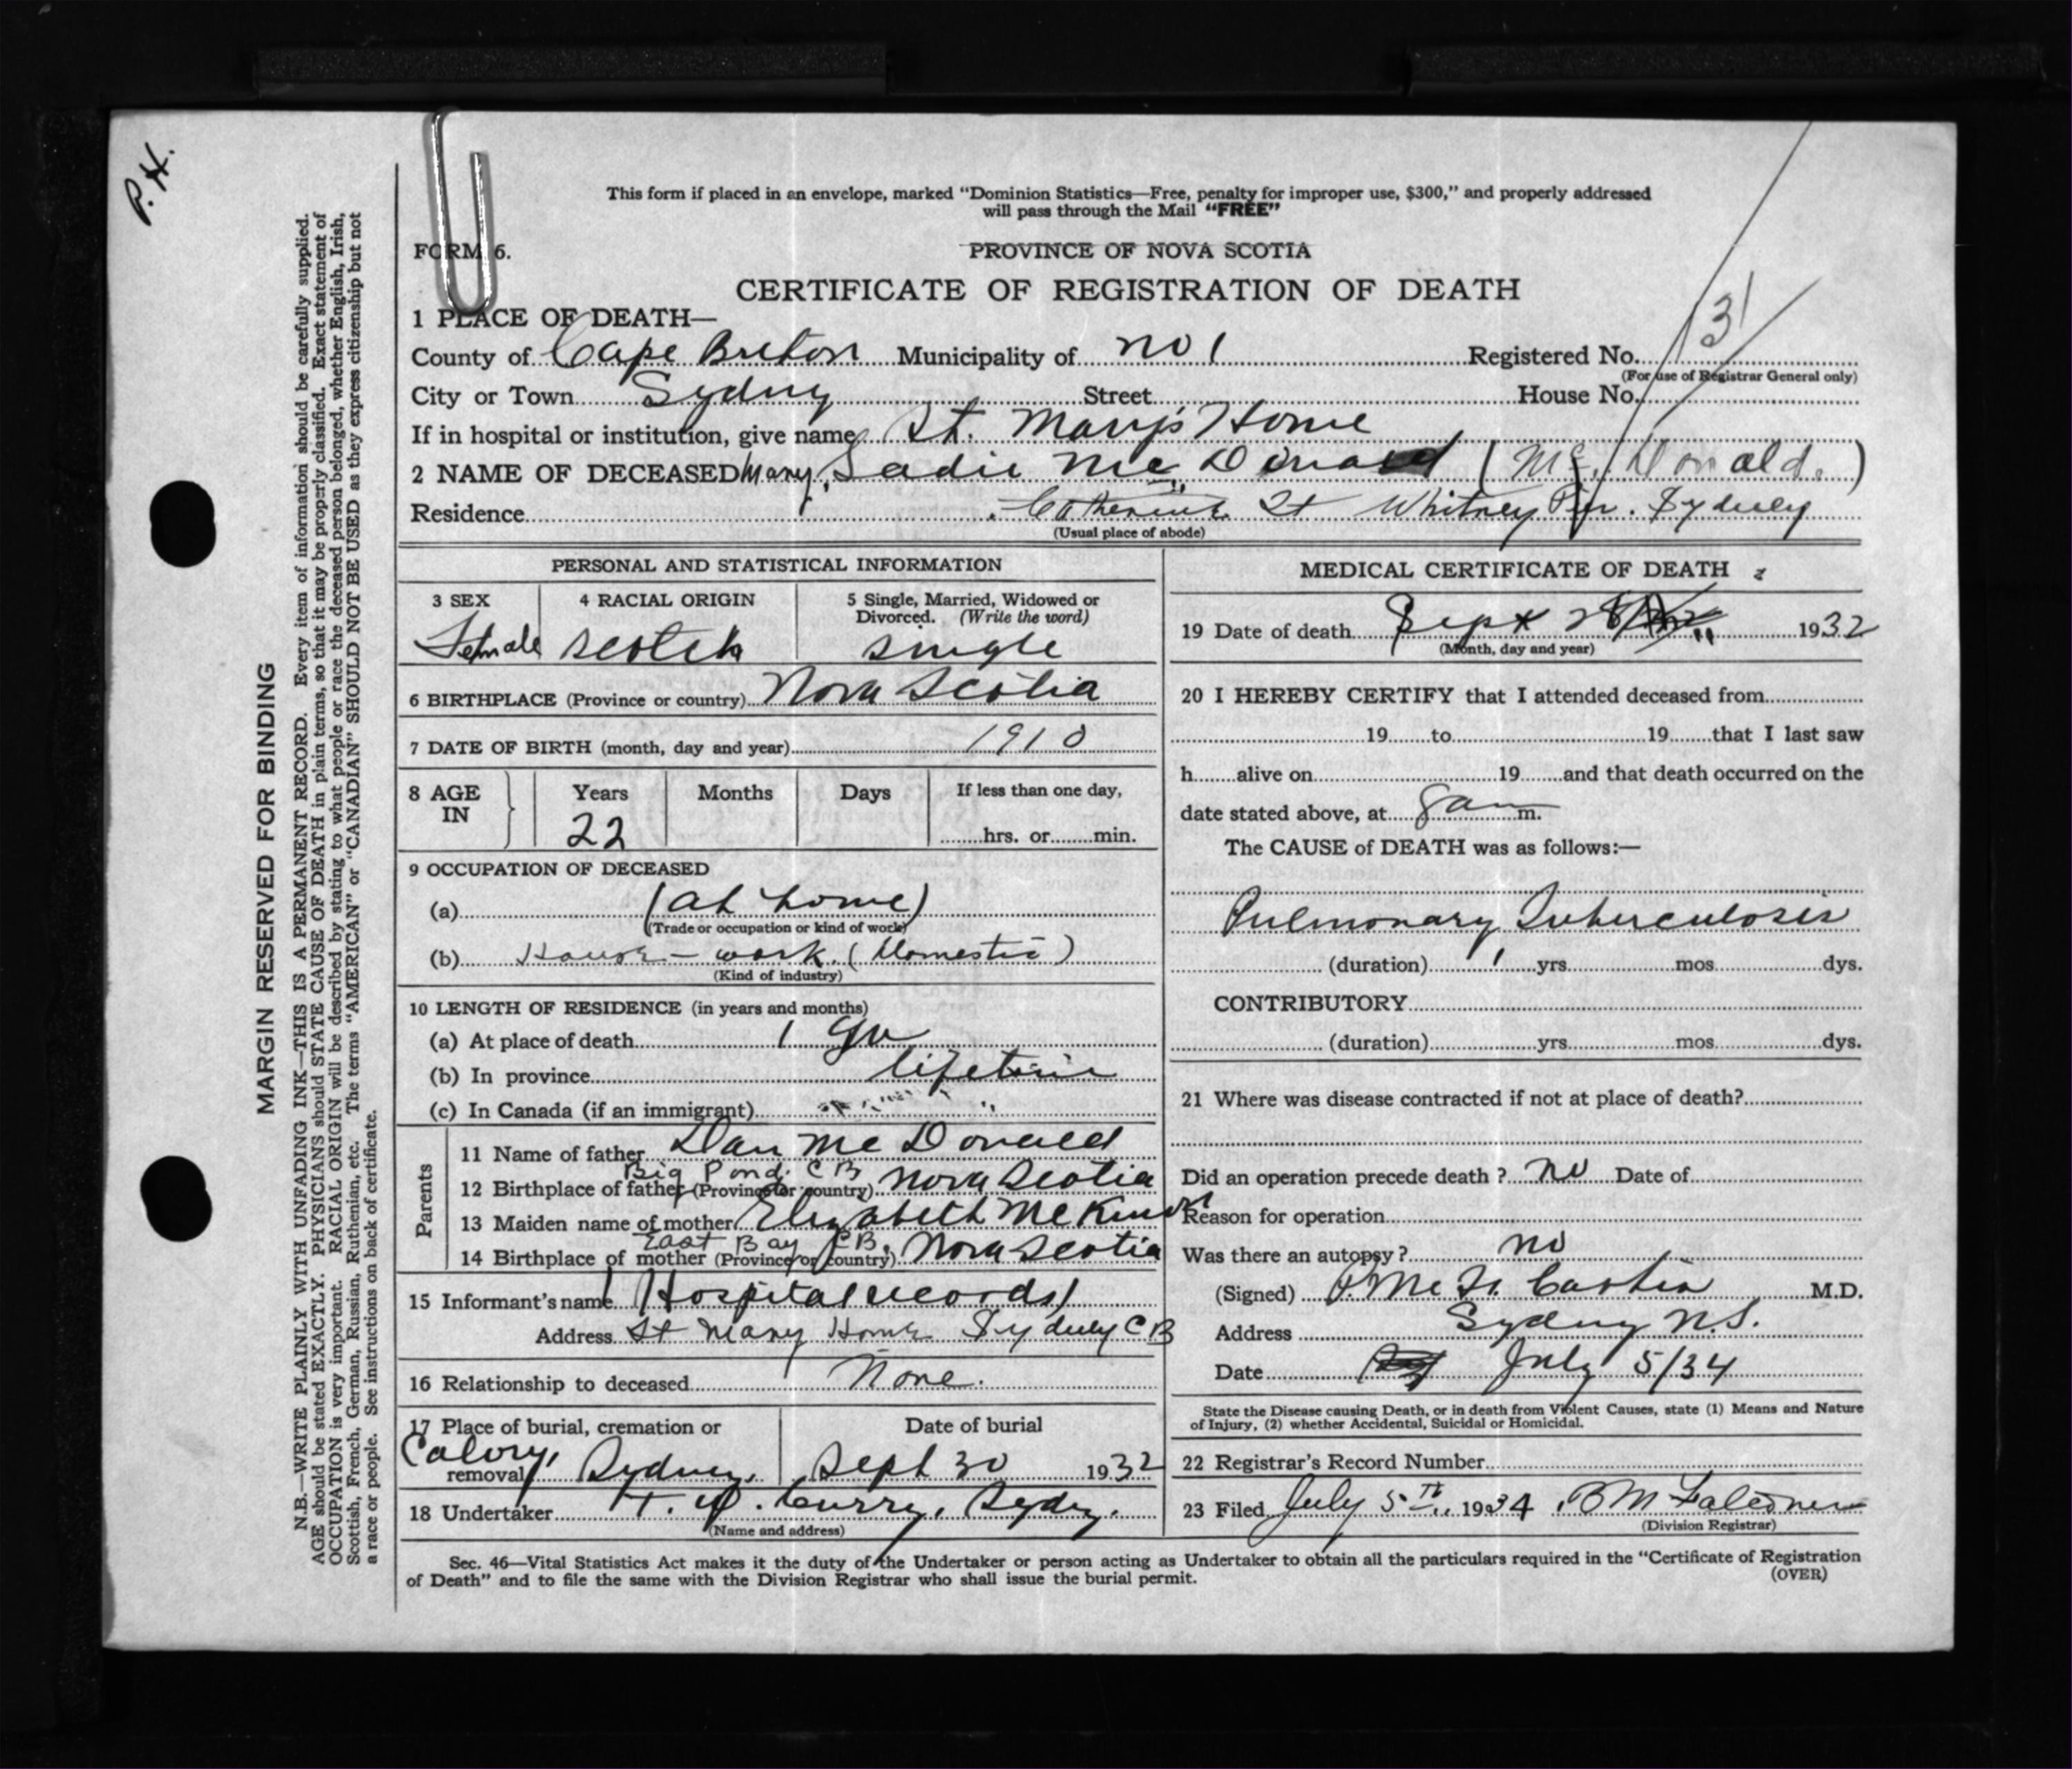 P.H.
This form if placed in an envelope, marked "Dominion Statistics—Free, penalty for improper use, $300," and properly addressed
will pass through the Mail "FREE"
FORM 6.
PROVINCE OF NOVA SCOTIA
CERTIFICATE OF REGISTRATION OF DEATH
1 PLACE OF DEATH—
County of Cape Breton Municipality of no 1 Registered No. 131
(For use of Registrar General only)
City or Town Sydny Street House No.
If in hospital or institution, give name St. Mary's Home
2 NAME OF DECEASED Mary Sadie Mc Donald (Mc. Donald.)
Residence Catherine St Whitney Pier. Sydney
(Usual place of abode)
PERSONAL AND STATISTICAL INFORMATION
3 SEX 4 RACIAL ORIGIN 5 Single, Married, Widowed or
Divorced. (Write the word)
Female Scotch single
6 BIRTHPLACE (Province or country) Nova Scotia
7 DATE OF BIRTH (month, day and year) 1910
8 AGE IN Years Months Days If less than one day,
22 hrs. or min.
9 OCCUPATION OF DECEASED
(a) (at home)
(Trade or occupation or kind of work)
(b) House-work. (Domestic)
(Kind of industry)
10 LENGTH OF RESIDENCE (in years and months)
(a) At place of death 1 yr
(b) In province lifetime
(c) In Canada (if an immigrant)
Parents
11 Name of father Dan Mc Donald
Big Pond. C B
12 Birthplace of father (Province or country) Nova Scotia
13 Maiden name of mother Elizabeth McKinnon
East Bay C.B.
14 Birthplace of mother (Province or country) Nova Scotia
15 Informant's name (Hospital records)
Address St Mary Home Sydney C B
16 Relationship to deceased None.
17 Place of burial, cremation or Date of burial
Calvory,
removal Sydney, Sept 30 1932
18 Undertaker Curry, Sydny.
(Name and address)
MEDICAL CERTIFICATE OF DEATH
19 Date of death Sept 28 1932
(Month, day and year)
20 I HEREBY CERTIFY that I attended deceased from
19 to 19 that I last saw
h alive on 19 and that death occurred on the
date stated above, at 8 am m.
The CAUSE of DEATH was as follows:—
Pulmonary Tuberculosis
(duration) 1 yrs. mos. dys.
CONTRIBUTORY
(duration) yrs. mos. dys.
21 Where was disease contracted if not at place of death?
Did an operation precede death? no Date of
Reason for operation
Was there an autopsy? no
(Signed) M.D.
Address Sydney N.S.
Date July 5/34
State the Disease causing Death, or in death from Violent Causes, state (1) Means and Nature
of Injury, (2) whether Accidental, Suicidal or Homicidal.
22 Registrar's Record Number
23 Filed July 5TH 1934 B M Falconer
(Division Registrar)
Sec. 46—Vital Statistics Act makes it the duty of the Undertaker or person acting as Undertaker to obtain all the particulars required in the "Certificate of Registration
of Death" and to file the same with the Division Registrar who shall issue the burial permit.
(OVER)
MARGIN RESERVED FOR BINDING
N.B.—WRITE PLAINLY WITH UNFADING INK—THIS IS A PERMANENT RECORD. Every item of information should be carefully supplied.
AGE should be stated EXACTLY. PHYSICIANS should STATE CAUSE OF DEATH in plain terms, so that it may be properly classified. Exact statement of
OCCUPATION is very important. RACIAL ORIGIN will be described by stating to what people or race the deceased person belonged, whether English, Irish,
Scottish, French, German, Russian, Ruthenian, etc. The terms "AMERICAN" or "CANADIAN" SHOULD NOT BE USED as they express citizenship but not
a race or people. See instructions on back of certificate.